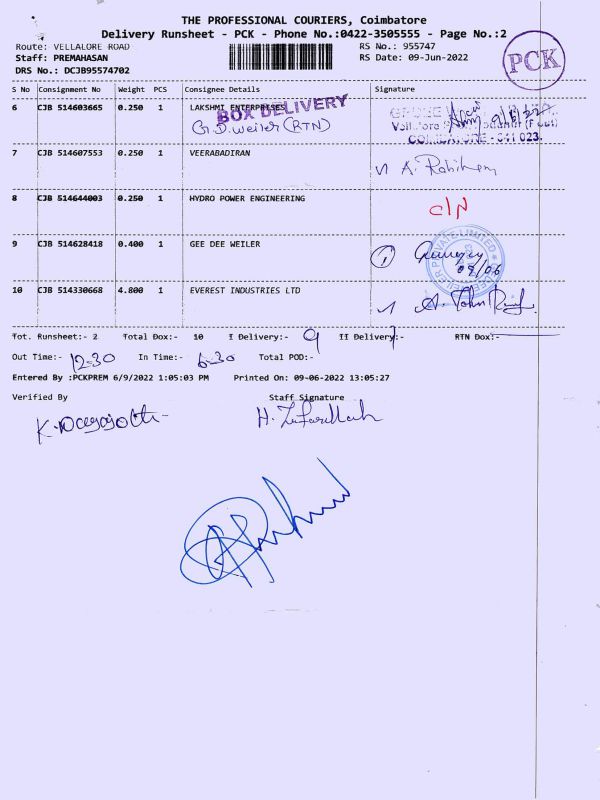 THE PROFESSIONAL COURIERS, Coimbatore
Delivery Runsheet - PCK - Phone No.:0422-3505555 - Page No.:2
Route: VELLALORE ROAD RS No.: 955747
Staff: PREMAHASAN RS Date: 09-Jun-2022
DRS No.: DCJB95574702
PCK
S No Consignment No Weight PCS Consignee Details Signature
6 CJB 514603665 0.250 1 LAKSHMI ENTERPRISES
BOX DELIVERY
G.D.weiler (RTN)
COIMBATORE - 641 023.
7 CJB 514607553 0.250 1 VEERABADIRAN
8 CJB 514644003 0.250 1 HYDRO POWER ENGINEERING C/N
9 CJB 514628418 0.400 1 GEE DEE WEILER 1
09/06
10 CJB 514330668 4.800 1 EVEREST INDUSTRIES LTD
Tot. Runsheet:- 2 Total Dox:- 10 I Delivery:- 9 II Delivery:- RTN Dox:-
Out Time:- 12-30 In Time:- 6-30 Total POD:-
Entered By :PCKPREM 6/9/2022 1:05:03 PM Printed On: 09-06-2022 13:05:27
Verified By Staff Signature